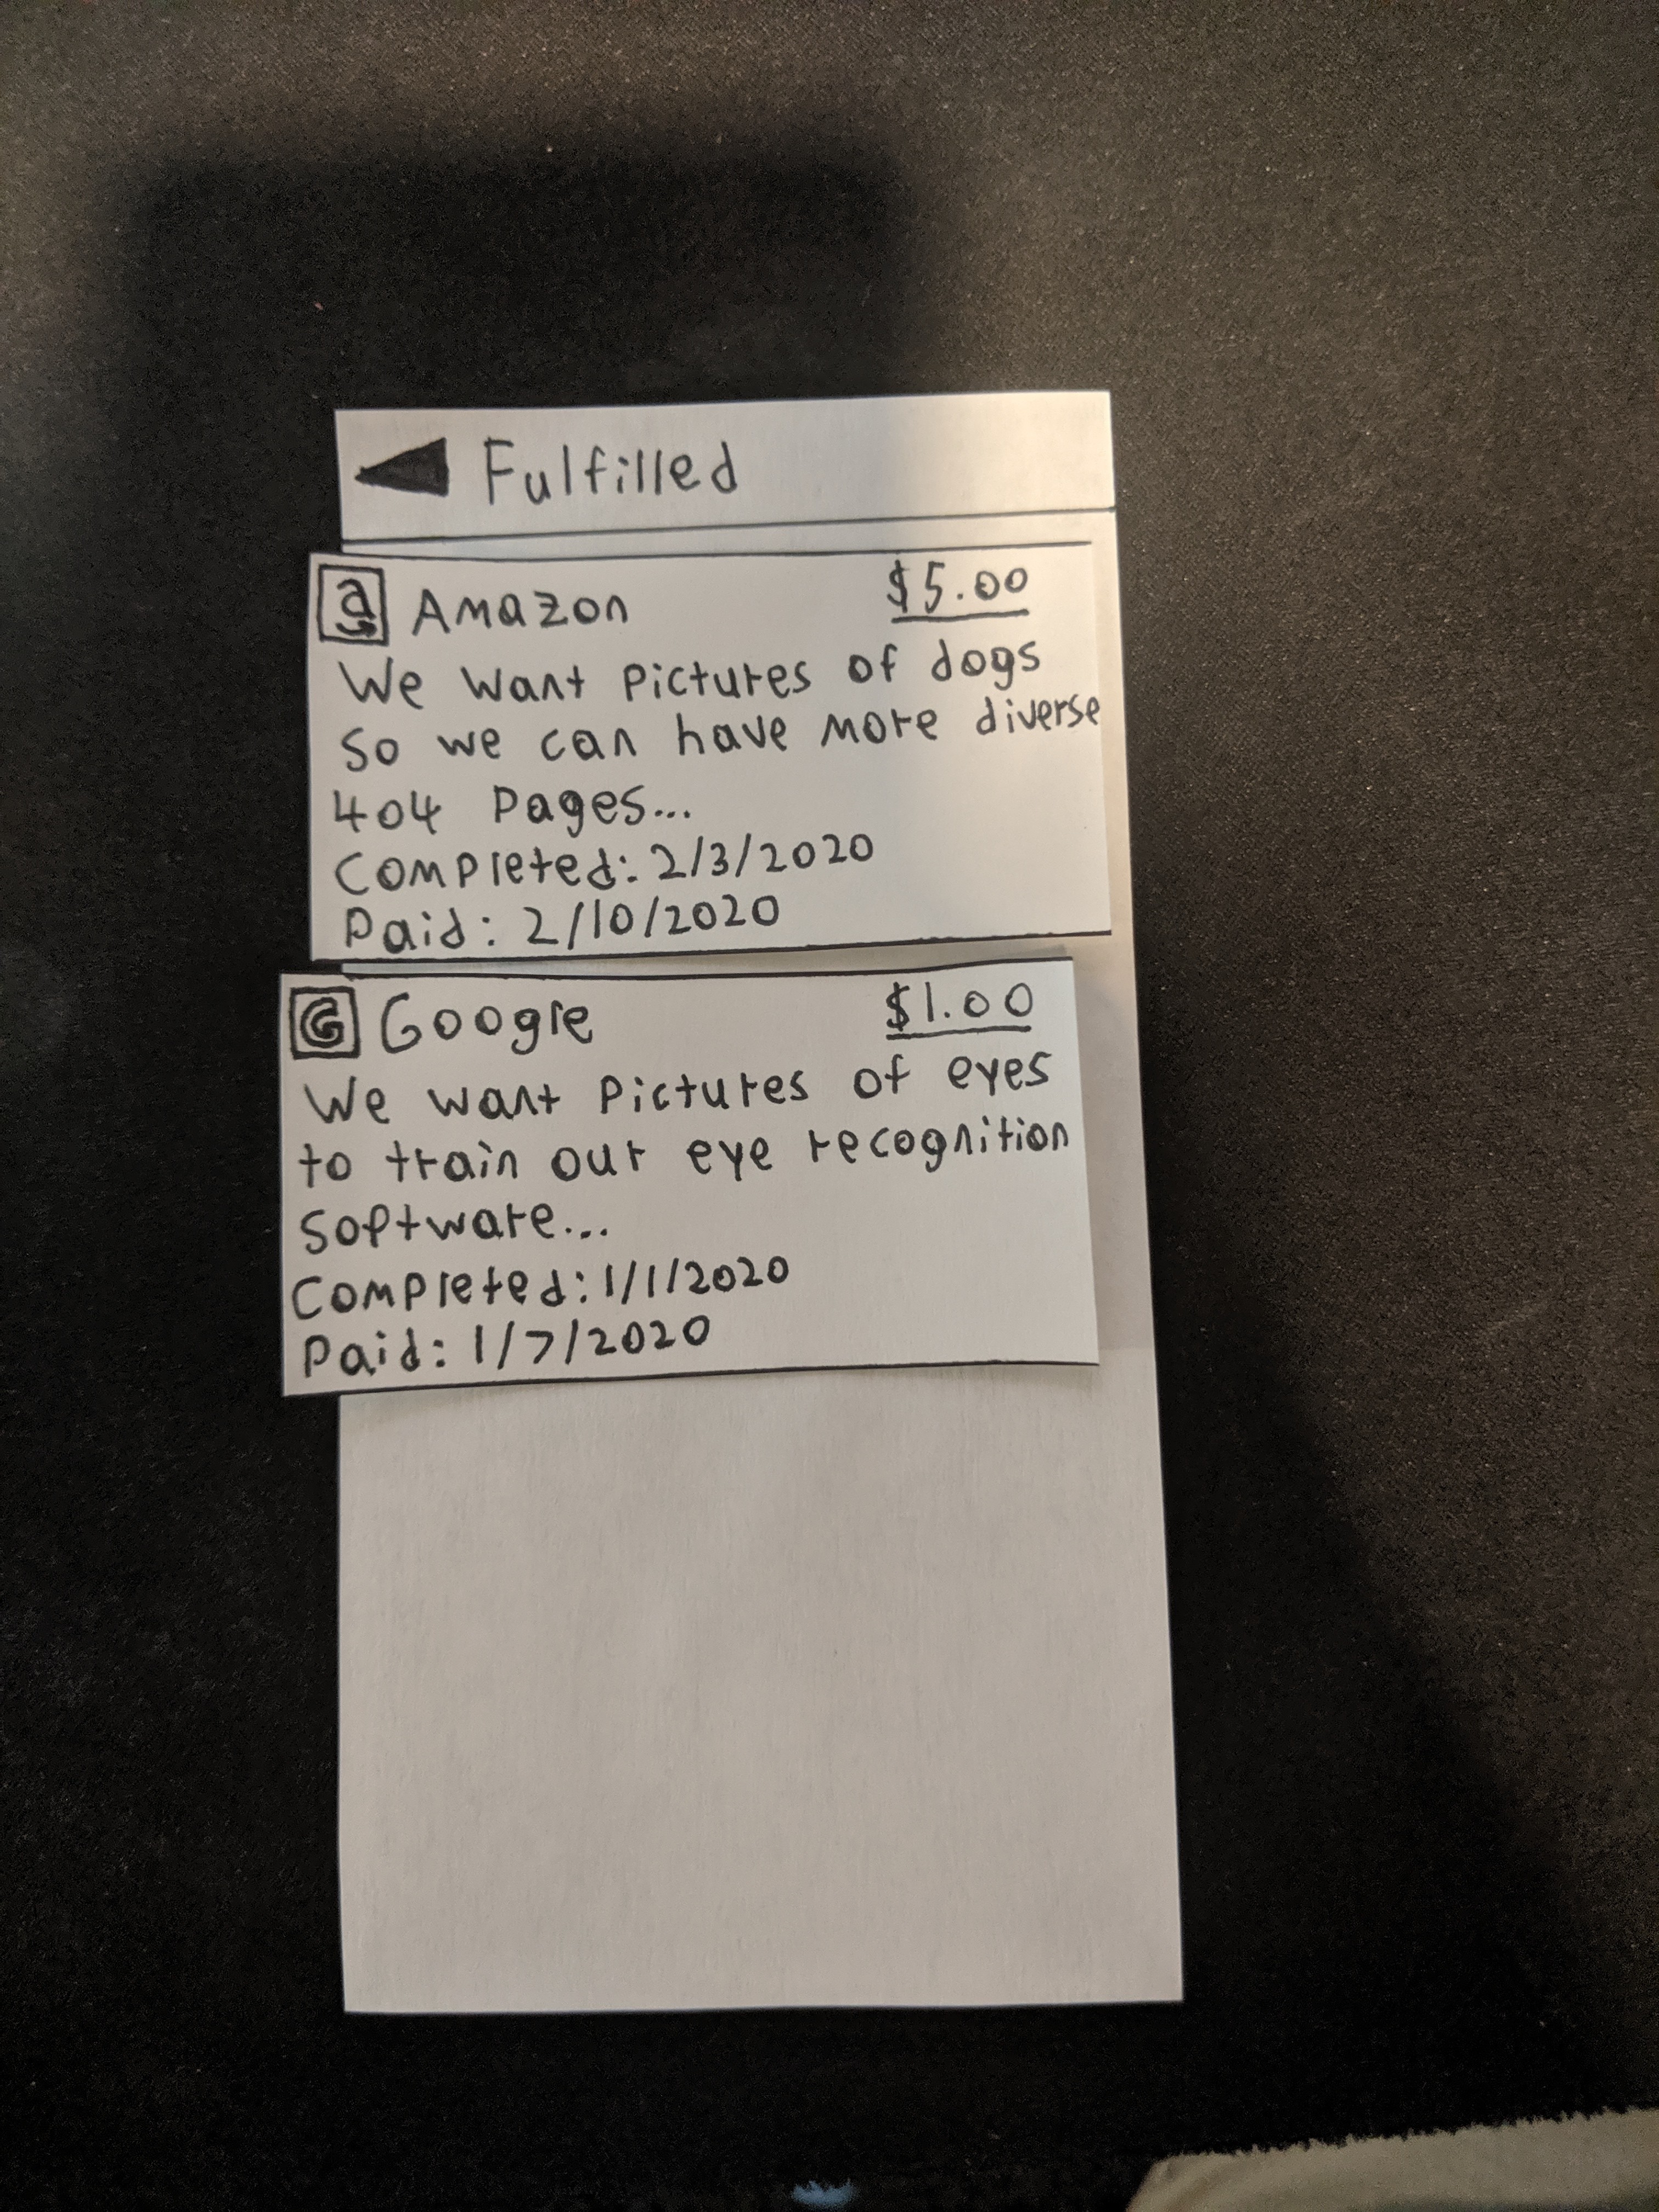 Fulfilled
a Amazon $5.00
We want Pictures of dogs
so we can have more diverse
404 Pages...
Completed: 2/3/2020
Paid: 2/10/2020
G Google $1.00
We want Pictures of eyes
to train our eye recognition
software...
Completed: 1/1/2020
Paid: 1/7/2020